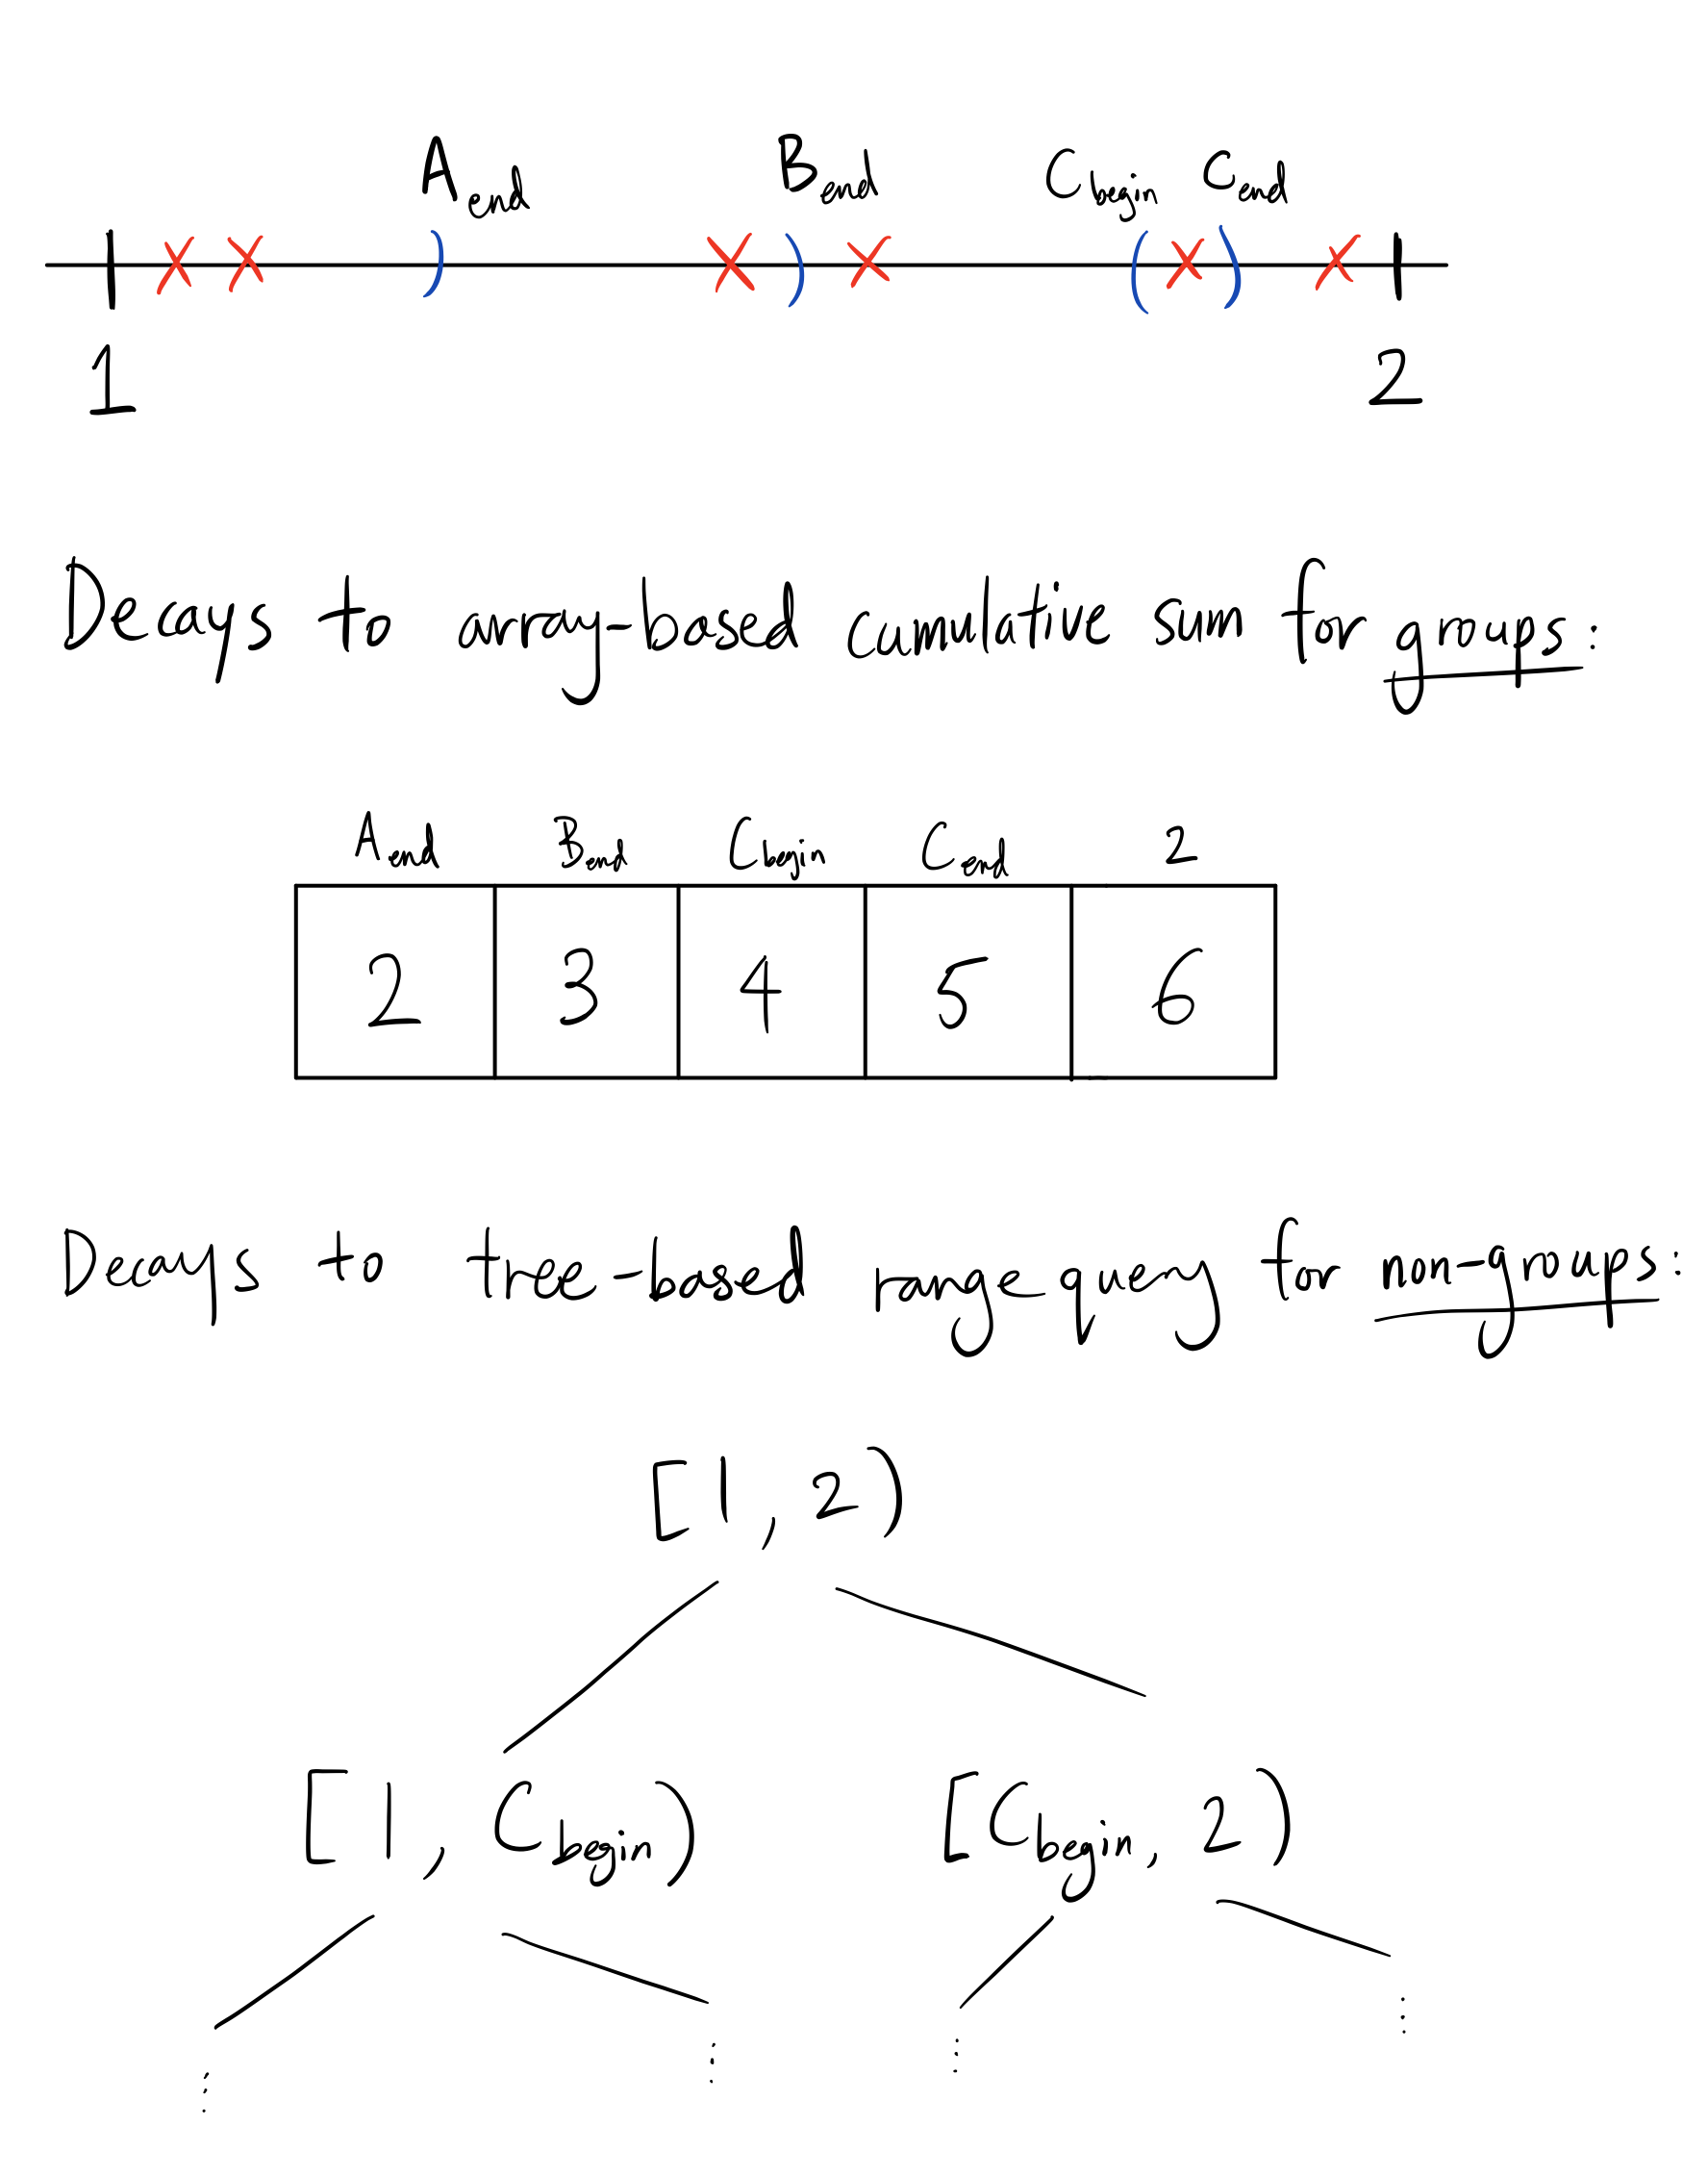 A_end B_end C_begin C_end
1 2
Decays to array-based cumulative sum for groups:
A_end B_end C_begin C_end 2
2 3 4 5 6
Decays to tree-based range query for non-groups:
[1, 2)
[1, C_begin) [C_begin, 2)